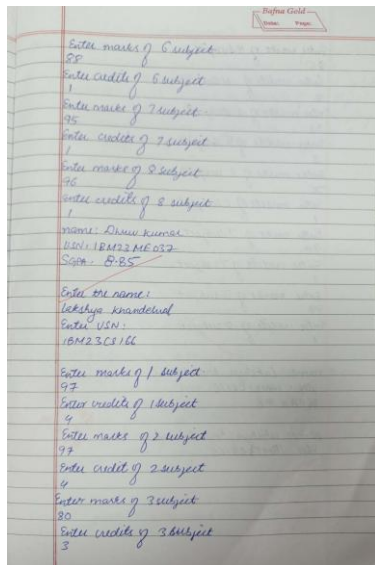 Bafna Gold
Date: Page:
Enter marks of 6 subject
88
Enter credits of 6 subject
1
Enter marks of 7 subject
95
Enter credits of 7 subject
1
Enter marks of 8 subject
96
enter credits of 8 subject
1
name: Dhruv Kumar
USN: 1BM23ME037
SGPA: 8.85
Enter the name:
Lakshya Khandelwal
Enter USN:
1BM23CS166
Enter marks of 1 subject
97
Enter credits of 1 subject
4
Enter marks of 2 subject
97
Enter credit of 2 subject
4
Enter marks of 3 subject
80
Enter credits of 3 subject
3